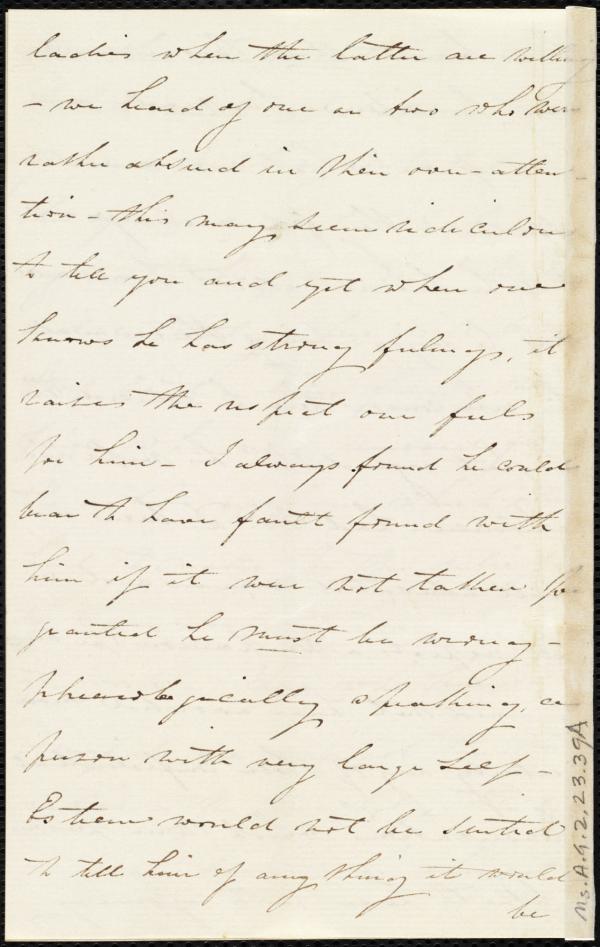 ladies when the latter are willing
- we heard of one or two who were
rather absurd in their own - atten
tion - this may seem ridiculous
to tell you and yet when one
knows he has strong feelings, it
raises the respect one feels
for him - I always found he could
bear to have fault found with
him if it were not taken for
granted he must be wrong -
phrenologically speaking, a
person with very large Self -
Esteem would not be suited
to tell him of any thing it would
be
Ms.A.9.2.23.39A